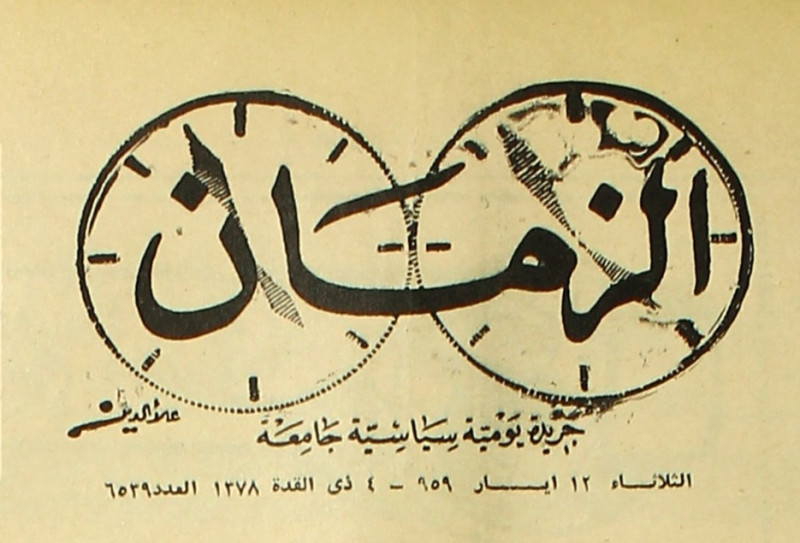 الزمان
جريدة يومية سياسية جامعة
علاء الدين
الثلاثاء ١٢ ايار ٩٥٩ – ٤ ذى القدة ١٣٧٨ العدد ٦٥٣٩